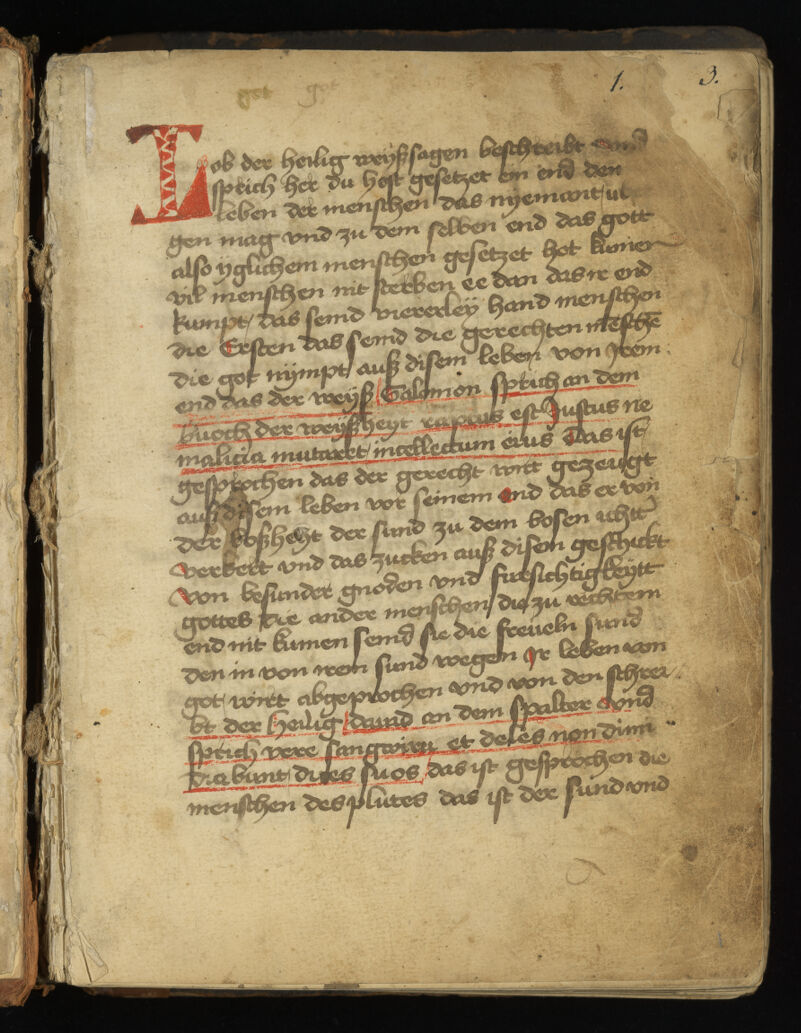 got got
1. 3.
Iob der heilig weyßsagen beschreibt vnd
sprich her du host gesetzet ein end den
leben der menschen das nyemant
gen mag vnd zu dem selben end das gott
also yglichem menschen gesetzet hot kumen
vil menschen nit sterben ee dan das ir end
kumpt / das seind viererley hand menschen
die Ersten das seind die gerechten mēschē
die got nympt auß disem leben von Irem
end das der weyß Salomon sprich an dem
buoch der weyßheyt raptus est Justus ne
malicia mutaret intellectum eius Das ist
gesprochen das der gerecht wirt gezeugt
auß disem leben vor seinem end das er von
der boßheyt der sund zu dem bosen icht
verkert vnd das zucken auß disem geschickt
Von besunder gnoden vnd fursichtigkeytt
gottes die ander menschen die zu rechtem
end nit kumen seind sie die freueln sund
den in von irem sund wegen Ir leben von
got wirt abgeprochen vnd von den schrei
bt der heilig dauid an dem spalter vnd
sprich vere sangwinū et deles non dimi
diabunt dies suos das ist gesprochen die
menschen des plutes das ist der sund vnd